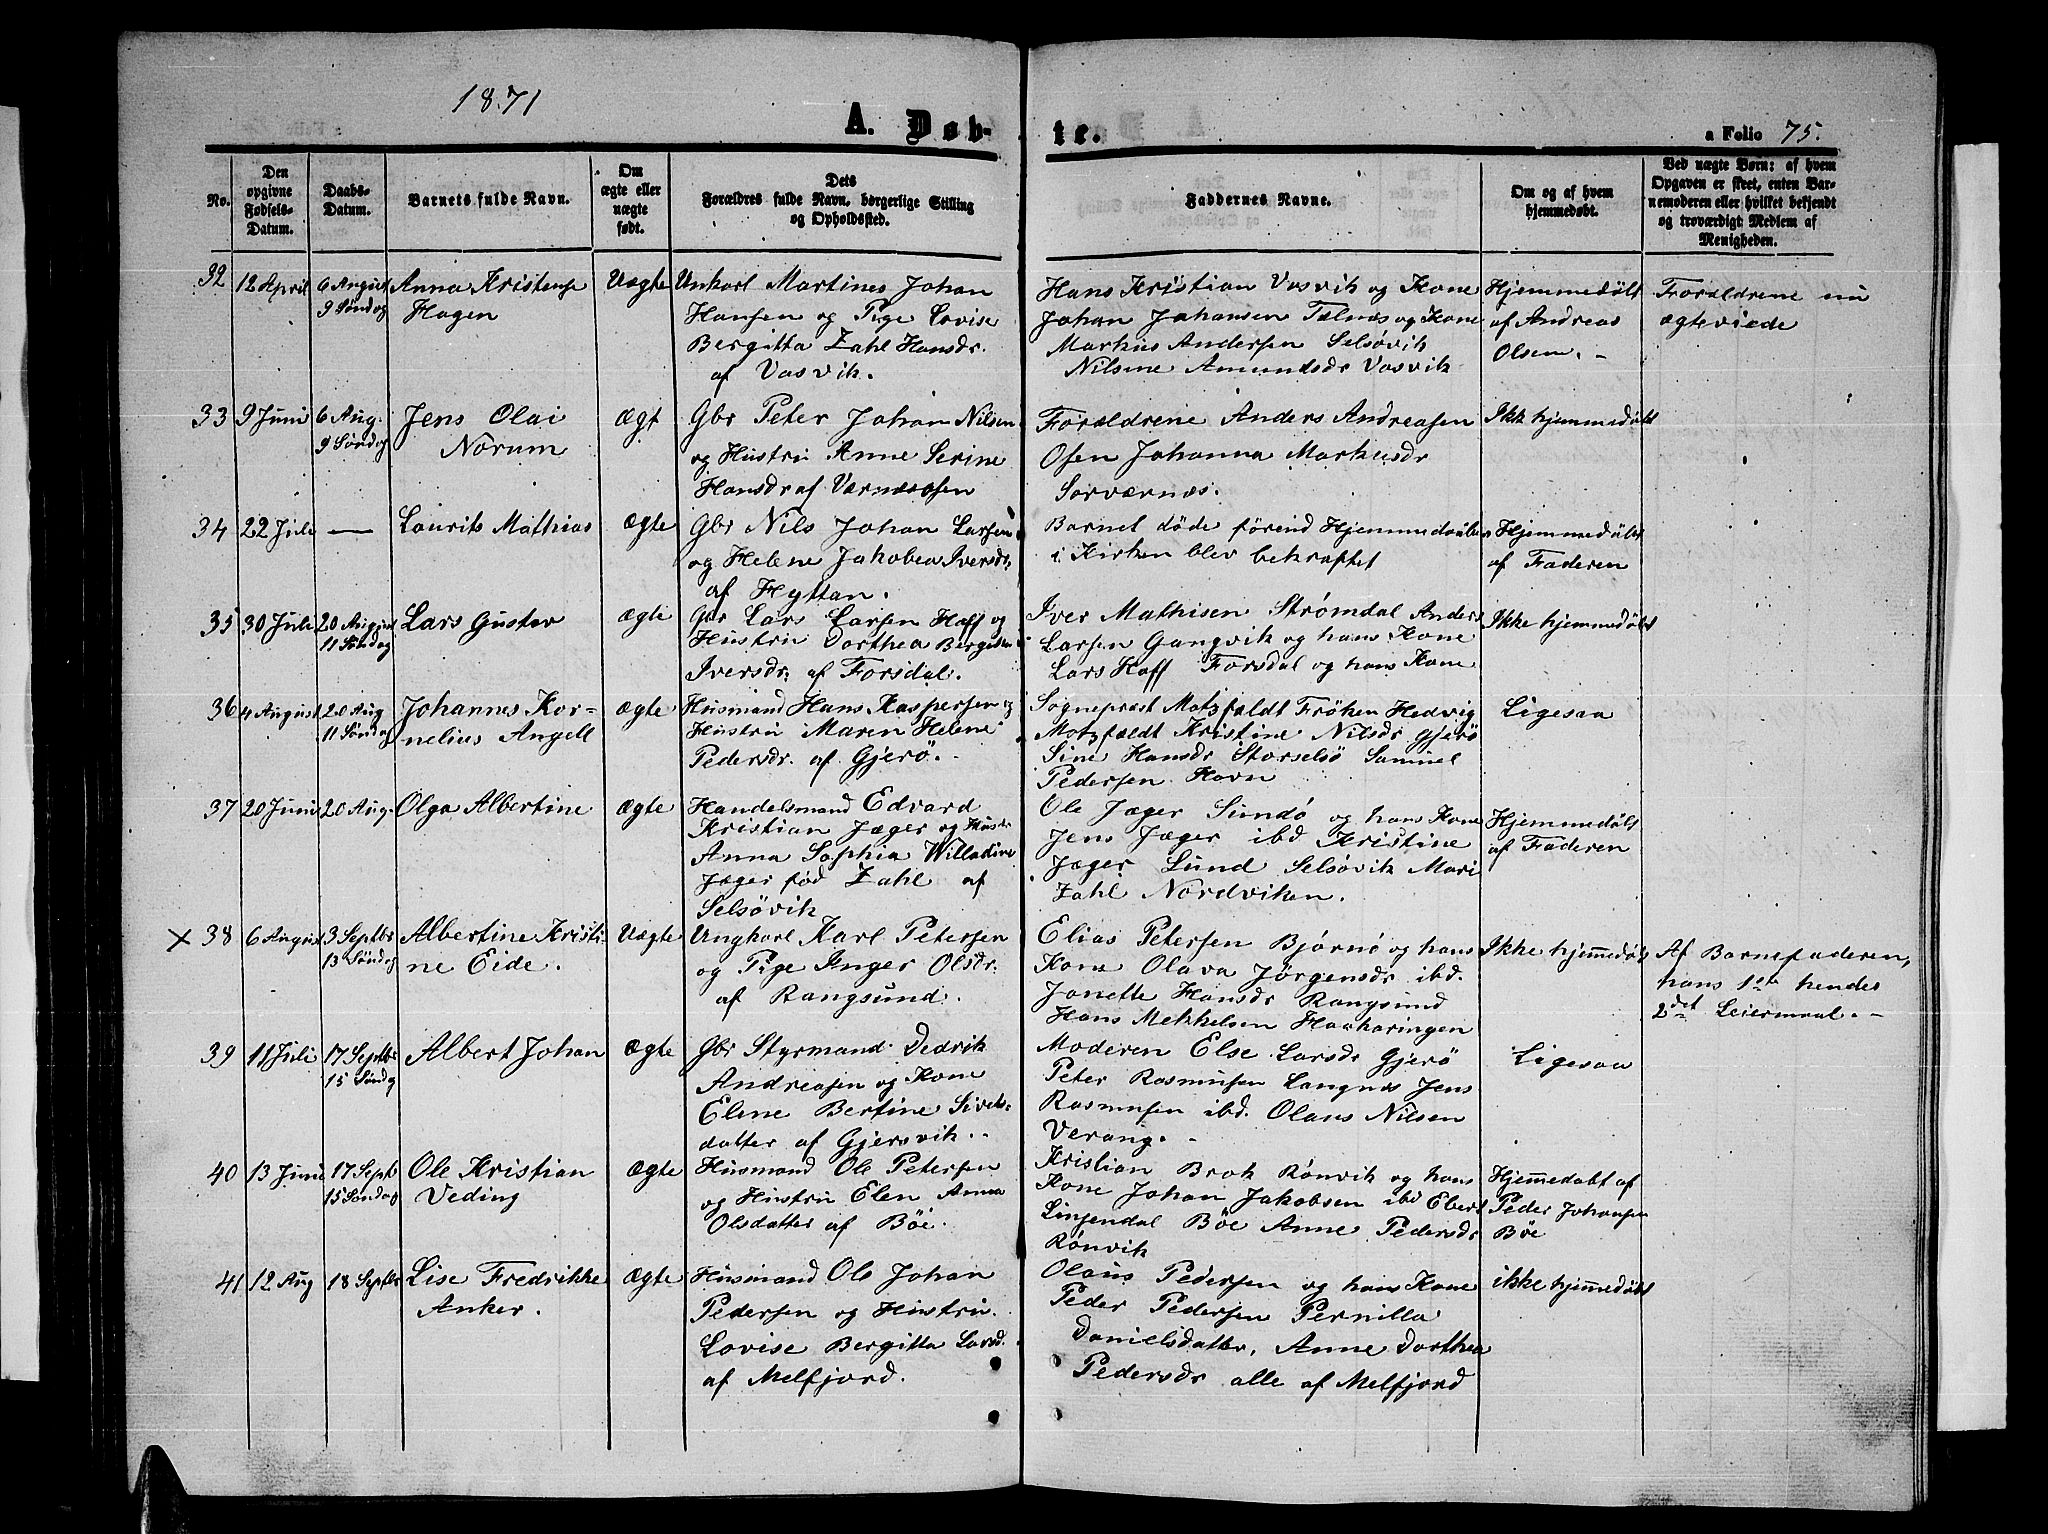 1871
A. Døbte.
a Folio 75.
No.
Den opgivne Fødsels-Datum.
Daabs-Datum.
Barnets fulde Navn.
Om ægte eller uægte født.
Dets Forældres fulde Navn, borgerlige Stilling og Opholdssted.
Faddernes Navne.
Om og af hvem hjemmedøbt.
Ved uægte Børn: af hvem Opgaven er skeet, enten Barnemoderen eller hvilket bekjendt og troværdigt Medlem af Menigheden.
32 12 April 6 August 9 Søndag
Anna Kristense
Hagen
Uægte
Unkarl Martines Johan
Hansen og Pige Lovise
Bergitta Zahl Hansdr.
af Vasvik.
Hans Kristian Vasvik og Kone
Johan Johansen Tælnæs og Kone
Markus Andersen Selsövik
Nilsine Amundsdr Vasvik
Hjemmedöbt
af Andreas
Olsen. -
Forældrene nu
ægteviede
33 9 Juni 6 Aug. 9 Søndag
Jens Olai
Norum
Ægt
Gbr Peter Johan Nilsen
og Hustru Anne Serine
Hansdr af Værnæsosen
Forældrene Anders Andreasen
Osen Johanna Markusdr
Sørværnæs.
Ikk hjemmedöbt
34 22 Juli —
Laurits Mathias
Ægte
Gbr Nils Johan Larsen
og Helene Jakobea Iversdr,
af Hyttan.
Barnet døde førend Hjemmedaaben
i Kirken blev bekræftet
Hjemmedöbt
af Faderen
35 30 Juli 20 August 11 Søndag
Lars Gustav
Ægte
Gbr Lars Larsen Haff og
Hustru Dorthea Bergitta
Iversdr. af Forsdal.
Iver Mathisen Strømdal Anders
Larsen Gangvik og hans Kone
Lars Hoff Forsdal og hans Kone
Ikke hjemmedöbt
36 4 August 20 Aug 11 Søndag
Johannes Kor-
nelius Angell
Ægte
Husmand Hans Kaspersen og
Hustru Maren Helene
Pedersdr. af Gjerö.
Sogneprest Motzfeldt Fröken Hedvig
Motzfældt Kristine Nilsdr Gjerö
Sine Hansdr Storselsö Samuel
Pedersen Havn
Ligesaa
37 20 Juni 20 Aug.
Olga Albertine
Ægte
Handelsmand Edvard
Kristian Jæger og Hustr
Anna Sophia Willadine
Jæger fød Zahl af
Selsövik
Ole Jæger Sundö og hans Kone
Jens Jæger ibd Kristine
Jæger Lund Selsövik Mari
Zahl Nordviken.
Hjemmedöbt
af Faderen
× 38 6 August 3 Septbr 13 Søndag
Albertine Kristi-
ne Eide.
Uægte
Ungkarl Karl Petersen
og Pige Inger Olsdr.
af Rangsund.
Elias Petersen Bjørnö og hans
Kone Olava Jörgensdr ibd.
Janette Hansdr Rangsund
Hans Mekkelsen Haakaringen
Ikke hjemmedöbt
Af Barnefaderen,
hans 1ste hendes
2det Leiermaal. -
39 11 Juli 17 Septbr 15 Søndag
Albert Johan
Ægte
Gbr Styrmand. Dedrik
Andreasen og Kone
Elene Bertine Siverts-
datter af Gjersvik..
Moderen Else Larsdr Gjerö
Peter Rasmusen Langnæs Jens
Rasmusen ibd. Olaus Nilsen
Verang. -
Ligesaa
40 13 Juni 17 Sept 15 Søndag
Ole Kristian
Veding
Ægte
Husmand Ole Petersen
og Hustru Elen Anna
Olsdatter af Böe.
Kristian Brok Rönvik og hans
Kone Johan Jakobsen ibd Ebert
Linjendal Böe Anne Pedersdr
Rönvik
Hjemmedøbt af
Peder Johansen
Böe
41 12 Aug 18 Septbr
Lise Fredrikke
Anker.
Ægte
Husmand Ole Johan
Pedersen og Hustru.
Lovise Bergitta Larsd.
af Melfjord.
Olaus Pedersen og hans Kone
Peder Pedersen Pernilla
Danielsdatter, Anne Dorthea
Pedersdr alle af Melfjord
ikke hjemmedöbt